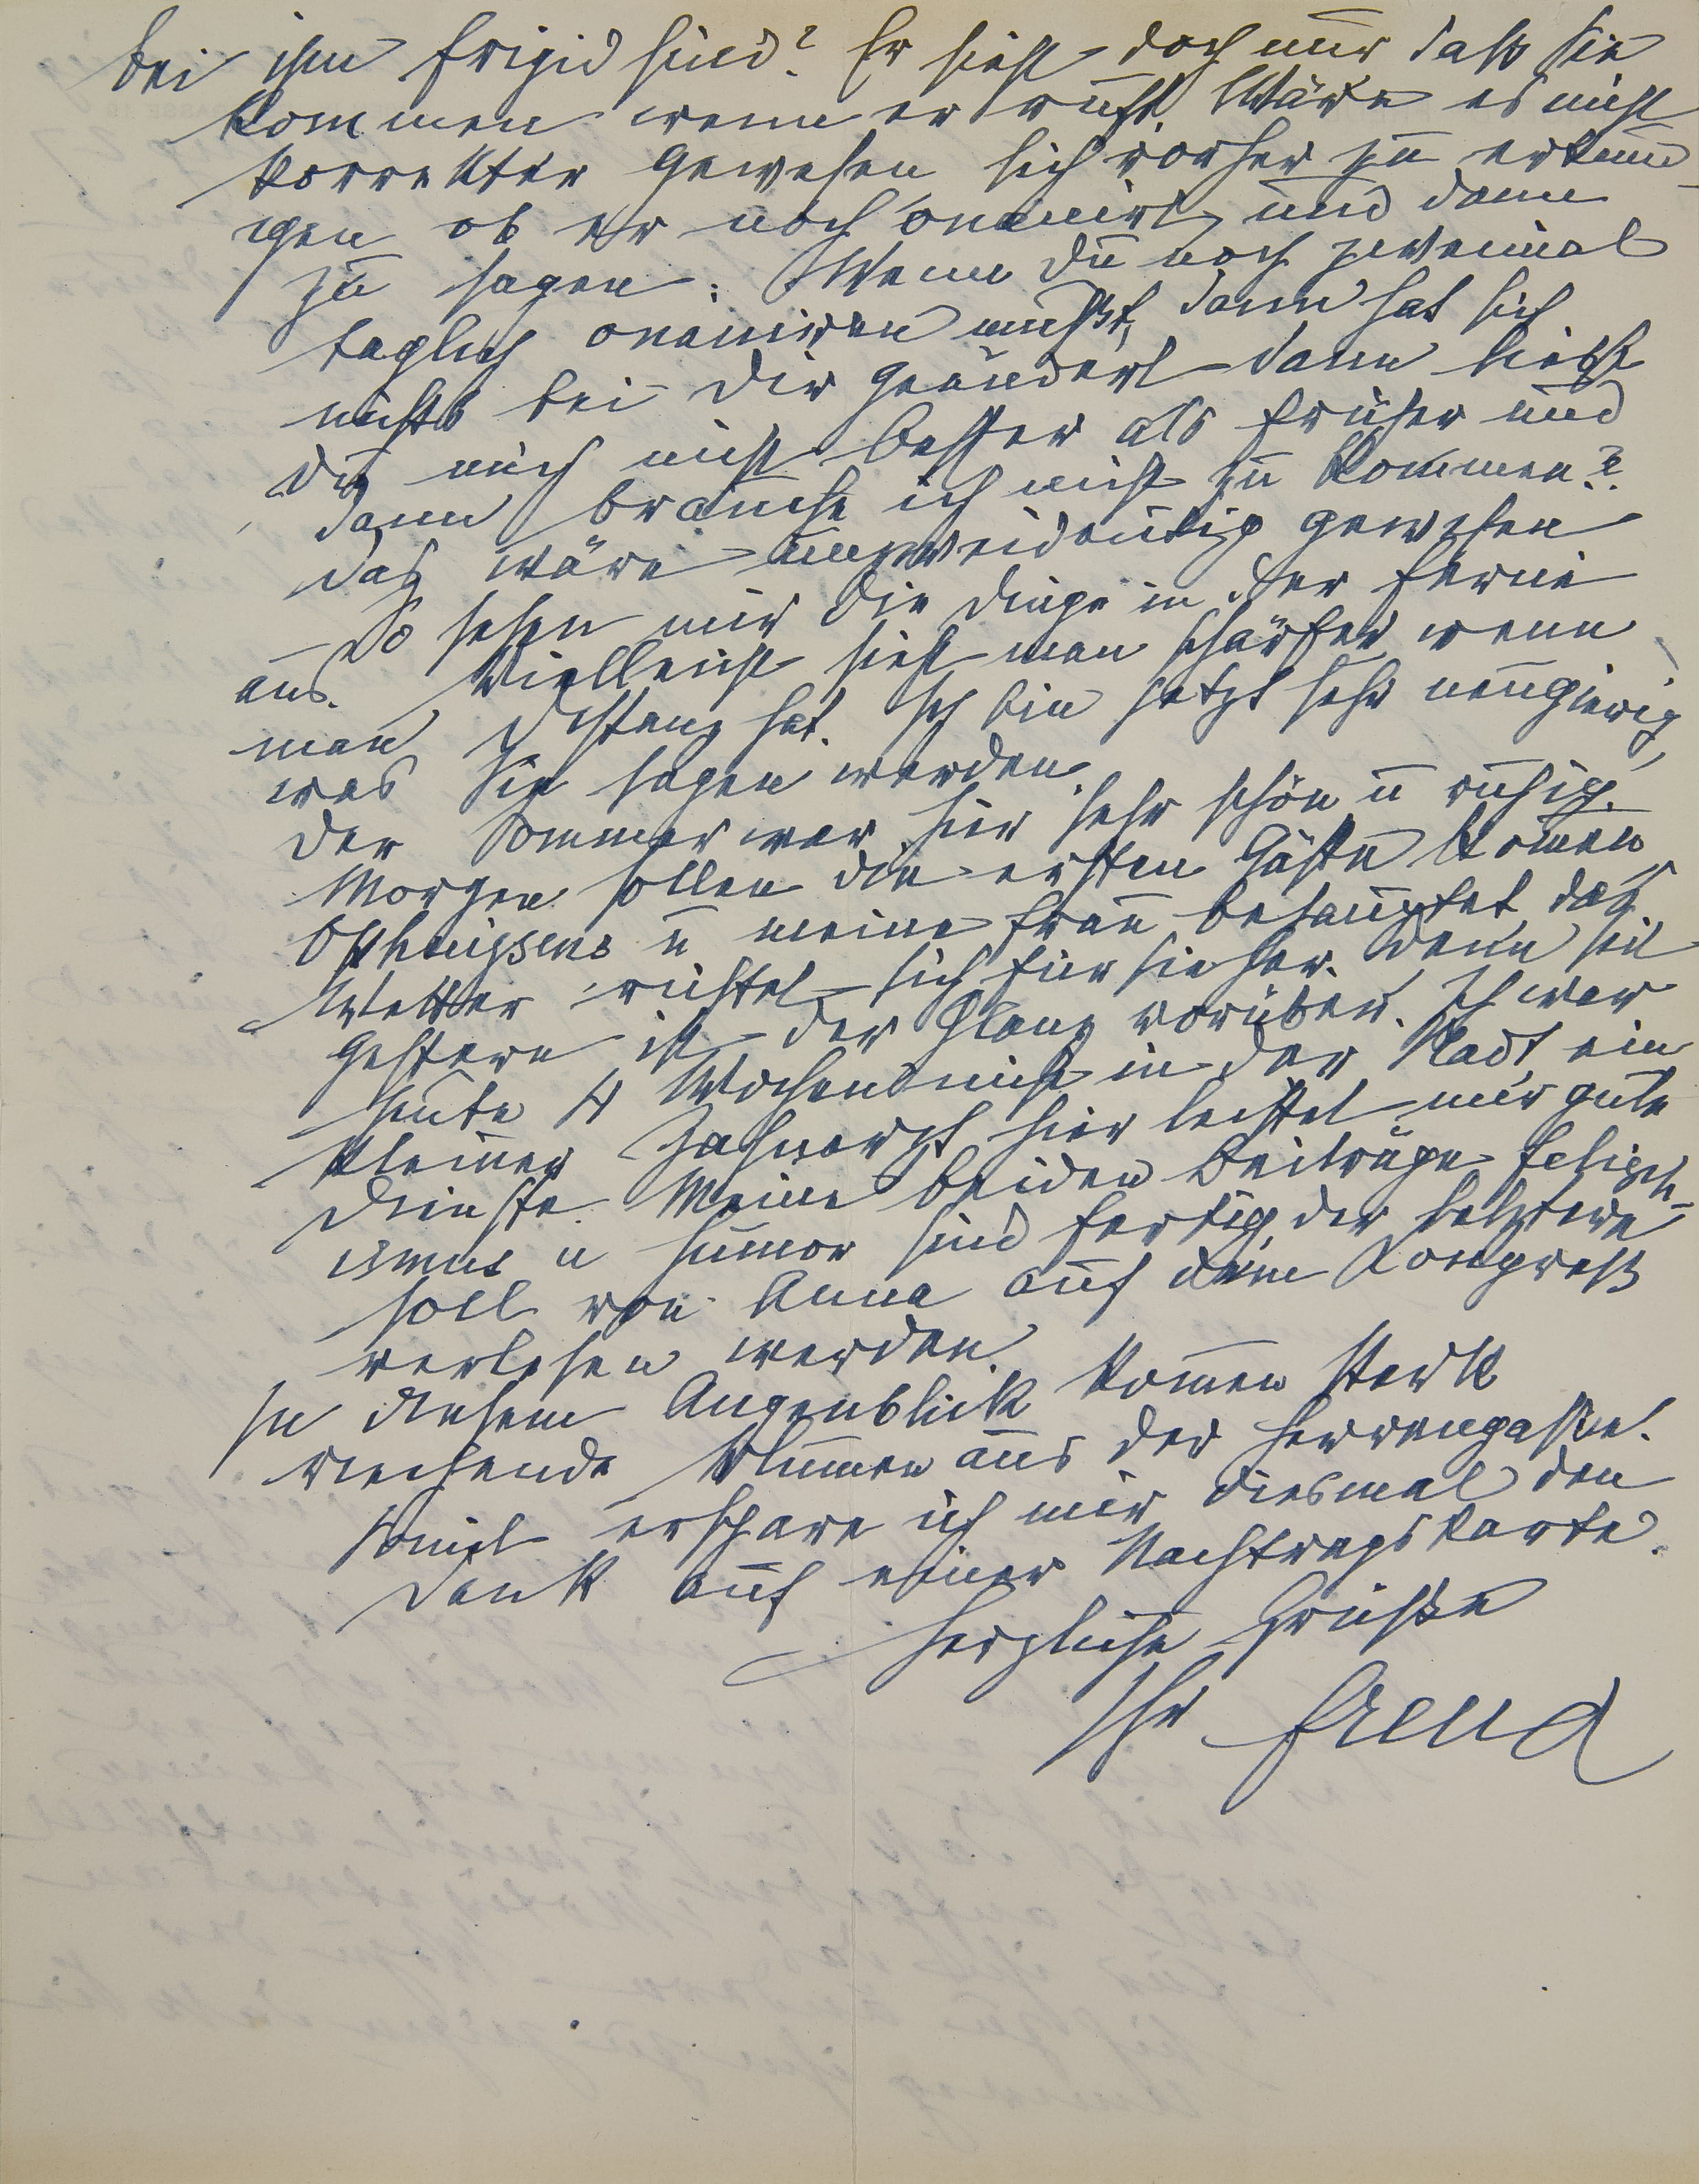 bei ihm frigid sind? Er sieht doch nur daß Sie
kommen wenn er ruft. Wäre es nicht
korrekter gewesen, sich vorher zu erkundi-
gen ob er noch onanirt, und dann
zu sagen: Wenn du noch zweimal
täglich onaniren mußt, dann hat sich
nichts bei dir geändert dann liebst
du mich nicht besser als früher und
dann brauche ich nicht zu kommen?
Das wäre unzweideutig gewesen
So sehen mir die Dinge in der Ferne
aus. Vielleicht sieht man schärfer wenn
man Distanz hat. Ich bin jetzt sehr neugierig,
was Sie sagen werden.
Der Sommer war hier sehr schön u ruhig.
Morgen sollen die ersten Gäste kom̄en
Ophuijsens u meine Frau behauptet das
Wetter rüstet sich für sie her. Denn seit
gestern ist der Glanz vorüber. Ich war
heute 4 Wochen nicht in der Stadt, ein
kleiner Zahnarzt hier leistet mir gute
Dienste. Meine beiden Beiträge Fetisch-
ismus u Humor sind fertig, der letztere
soll von Anna auf dem Kongreß
verlesen werden.
In diesem Augenblick kom̄en stark
riechende Blumen aus der Herrengasse!
Somit erspare ich mir diesmal den
Dank auf einer Nachtragskarte.
Herzliche Grüße
Ihr Freud